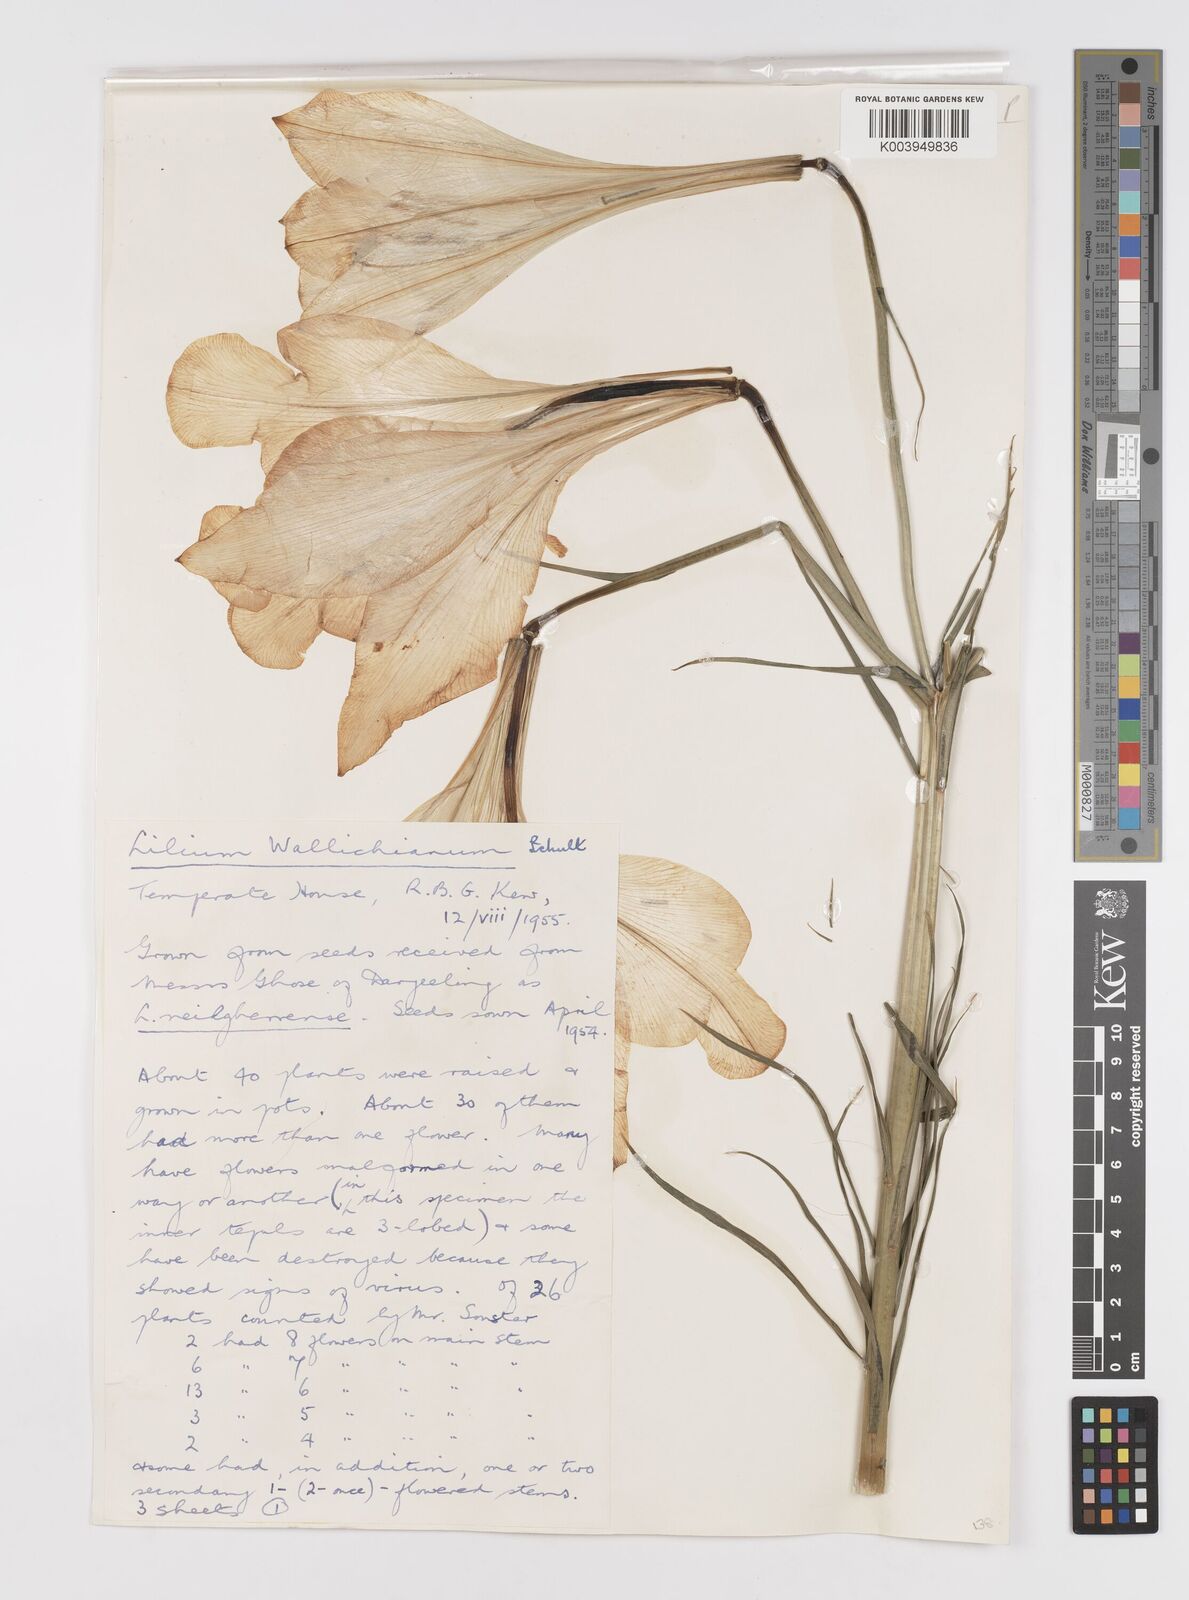 ROYAL BOTANIC GARDENS KEW
K003949836
Lilium Wallichianum Schult
Temperate House, R.B.G. Kew,
12/viii/1955.
Grown from seeds received from
Messrs Ghose of Darjeeling as
L. neilgherrense. Seeds sown April
1954.
About 40 plants were raised &
grown in pots. About 30 of them
had more than one flower. Many
have flowers malformed in one
way or another (in this specimen the
inner tepals are 3-lobed) & some
have been destroyed because they
showed signs of virus. Of 26
plants counted by Mr. Souster
2 had 8 flowers on main stem
6 " 7 " " " "
13 " 6 " " " "
3 " 5 " " " "
2 " 4 " " " "
& some had, in addition, one or two
secondary 1- (2- once) - flowered stems.
3 sheets 1
138
inches
centimetres
Density
Don Williams
M000827
Royal Botanic Gardens
Kew
0 1 2 3 4 5 6 7 8 9 10
cm
copyright reserved